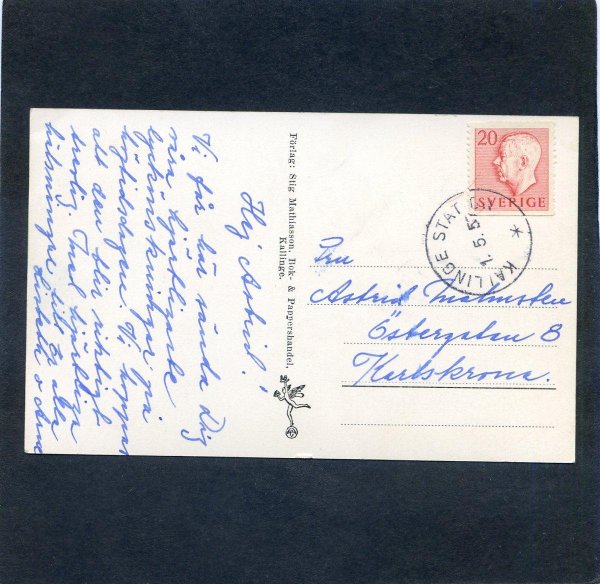 Hej Astrid!
Vi får här sända Dig
våra hjärtligaste
lyckönskningar på
högtidsdagen. Vi hoppas
att den blir riktigt
trevlig. Tusen hjärtliga
hälsningar till Er alla
Lisbeth o Arne
Förlag: Stig Mathiasson, Bok- & Pappershandel,
Kallinge.
20
SVERIGE
KALLINGE STAT
1.5.5
Fru
Astrid Malmsten
Östergatan 8
Karlskrona.